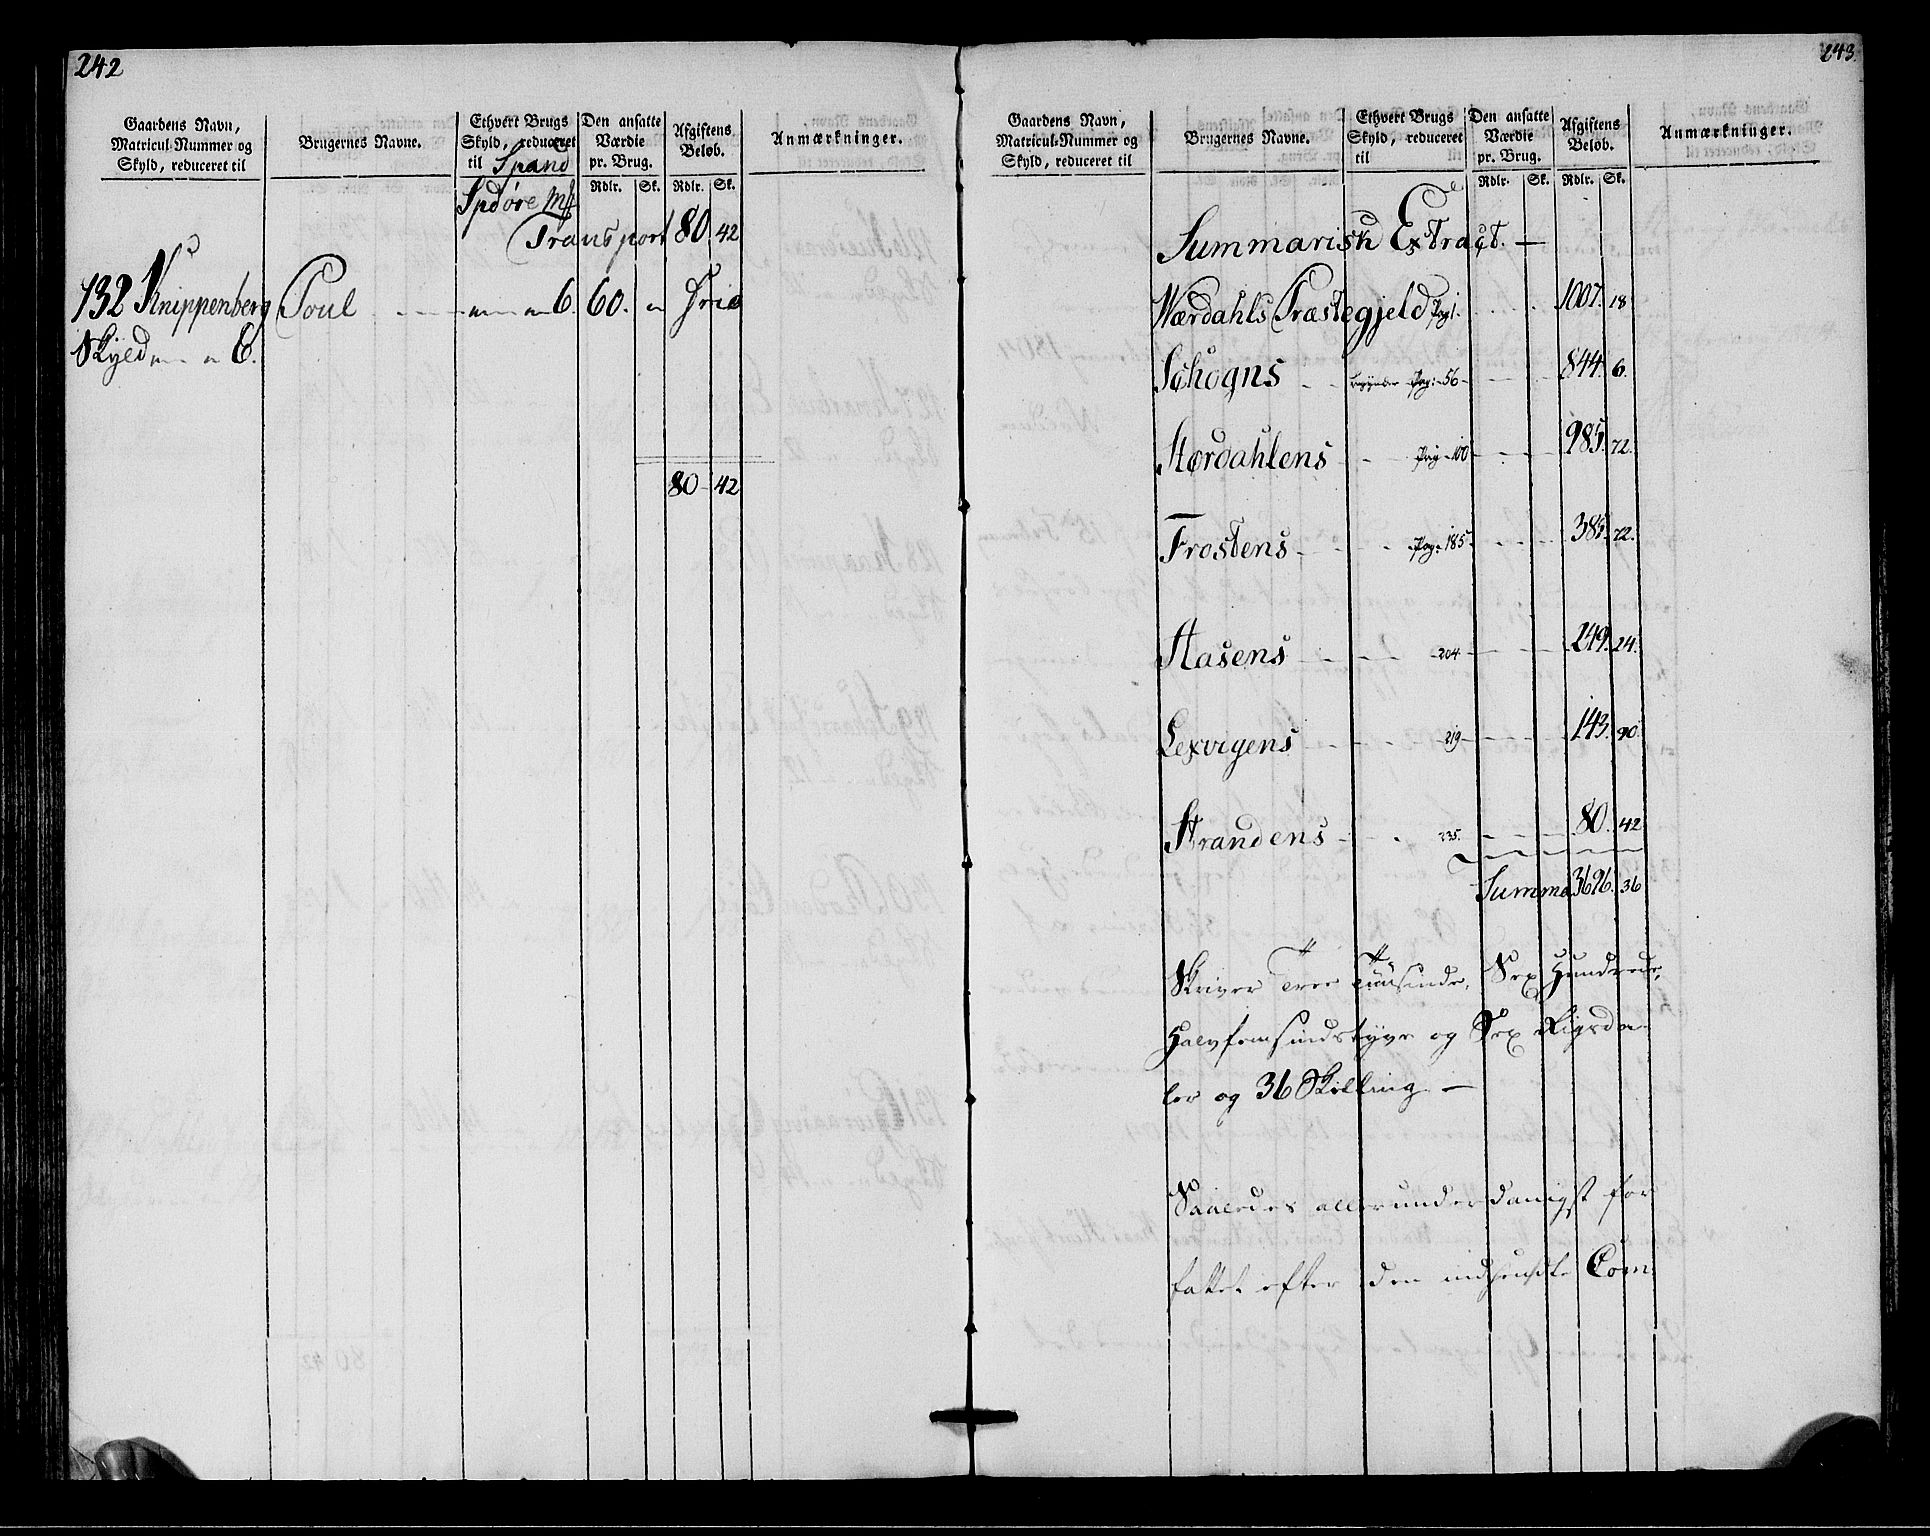 242
Gaardens Navn,
Matricul-Nummer og
Skyld, reduceret til
Brugernes Navne.
Ethvert Brugs
Skyld, reduceret
til Spand
Den ansatte
Værdie
pr. Brug.
Afgiftens
Beløb.
Anmærkninger.
Rdlr. Sk. Rdlr. Sk.
Spd øre Mk
Transport 80 42
132 Knippenberg Poul 6. 60. Frie
Skyld 6.
80 42
243.
Gaardens Navn,
Matricul-Nummer og
Skyld, reduceret til
Brugernes Navne.
Ethvert Brugs
Skyld, reduceret
til
Den ansatte
Værdie
pr. Brug.
Afgiftens
Beløb.
Anmærkninger.
Rdlr. Sk. Rdlr. Sk.
Summarisk Extract.
Værdahls Præstegjeld Pag 1. 1007. 18
Schogns begynder Pag: 56 844. 6.
Størdahlens Pag 100 985. 72.
Frostens Pag: 185 385. 72.
Aasens 204 249. 24.
Lexvigens 219 143. 90.
Strandens 235. 80. 42
Summa 3696. 36
Skriver Tree Tuusinde, Sex Hundrede,
Halvfemsindstyve og Sex Rigsda-
ler og 36 Skilling. —
Saaledes allerunderdanigst for
fattet efter den indsendte Com